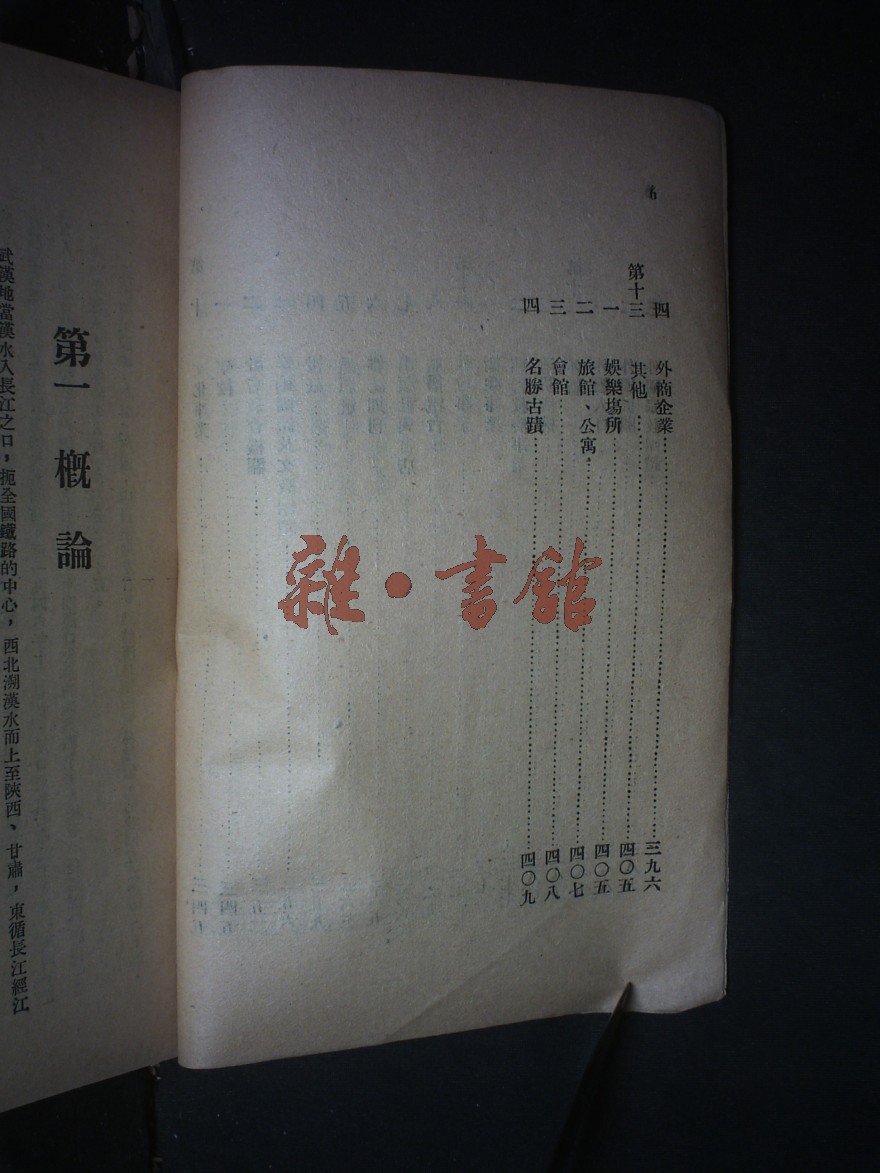 6
四 外商企業 三九六
第十三 其他 四〇五
一 娛樂場所 四〇五
二 旅館、公寓 四〇七
三 會館 四〇八
四 名勝古蹟 四〇九
雜·書館
第一 概論
武漢地當漢水入長江之口，扼全國鐵路的中心，西北溯漢水而上至陝西、甘肅，東循長江經江